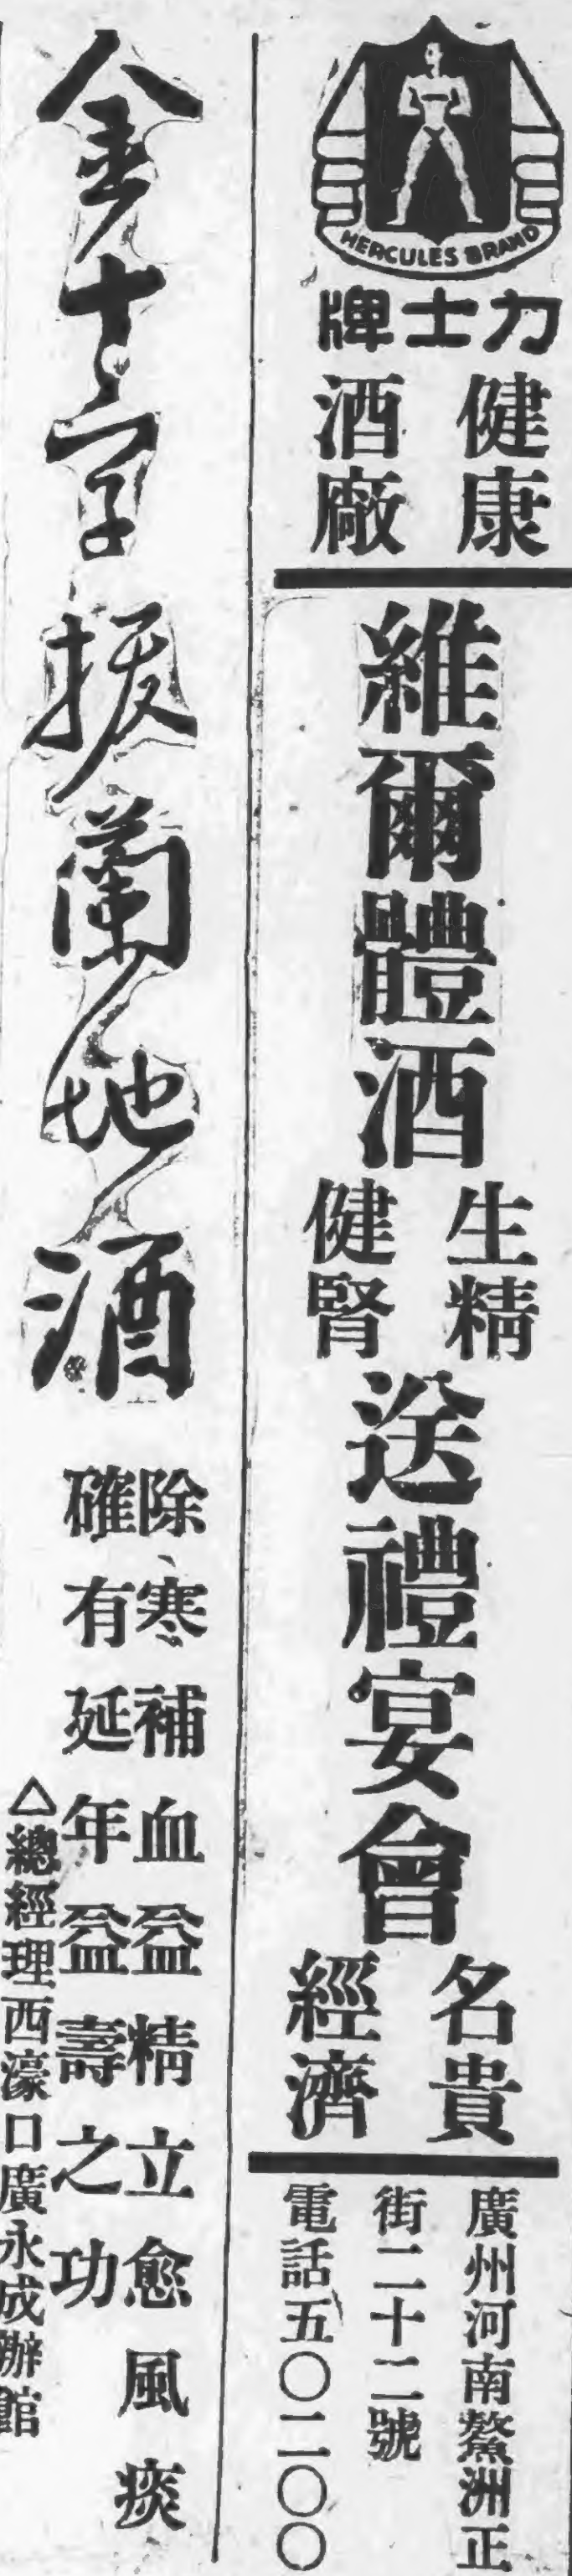 HERCULES BRAND
力士牌
健康
酒廠
維爾體酒
生精
健腎
送禮宴會
名貴
經濟
廣州河南鰲洲正
街二十二號
電話五〇二〇〇
金十字拔蘭地酒
除寒補血益精立愈風痰
確有延年益壽之功
△總經理西濠口廣永成辦館